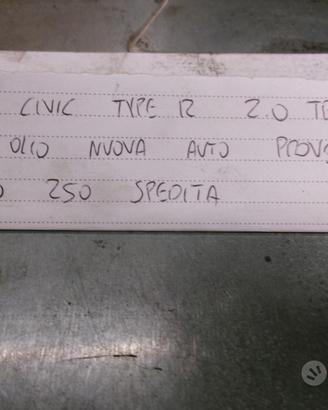 CIVIC TYPE R 2.0
OLIO NUOVA AUTO
250 SPEDITA